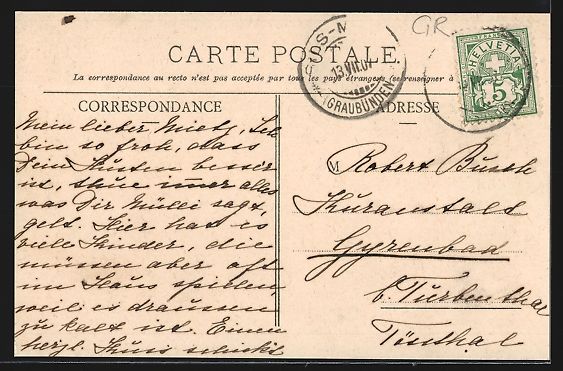 GR
CARTE POSTALE.
La correspondance au recto n'est pas acceptée par tous les pays étrangers (se renseigner à
CORRESPONDANCE
ADRESSE
HELVETIA
5
13.VII.07
(GRAUBÜNDEN)
Mein lieber Mietz, Ich
bin so froh, dass
Dein Husten besser
ist, thue immer alles
was Dir Mülei sagt,
gelt. Hier hat es
viele Kinder, die
müssen aber oft
im Haus spielen,
weil es draussen
zu kalt ist. Einen
herzl. Kuss schickt
M
Robert
Kuranstald
Gyrenbad
b. Turbenthal
Tössthal